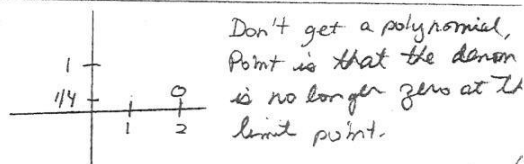 Don't get a polynomial,
1 Point is that the denom
1/4 is no longer zero at th
1 2 limit point.